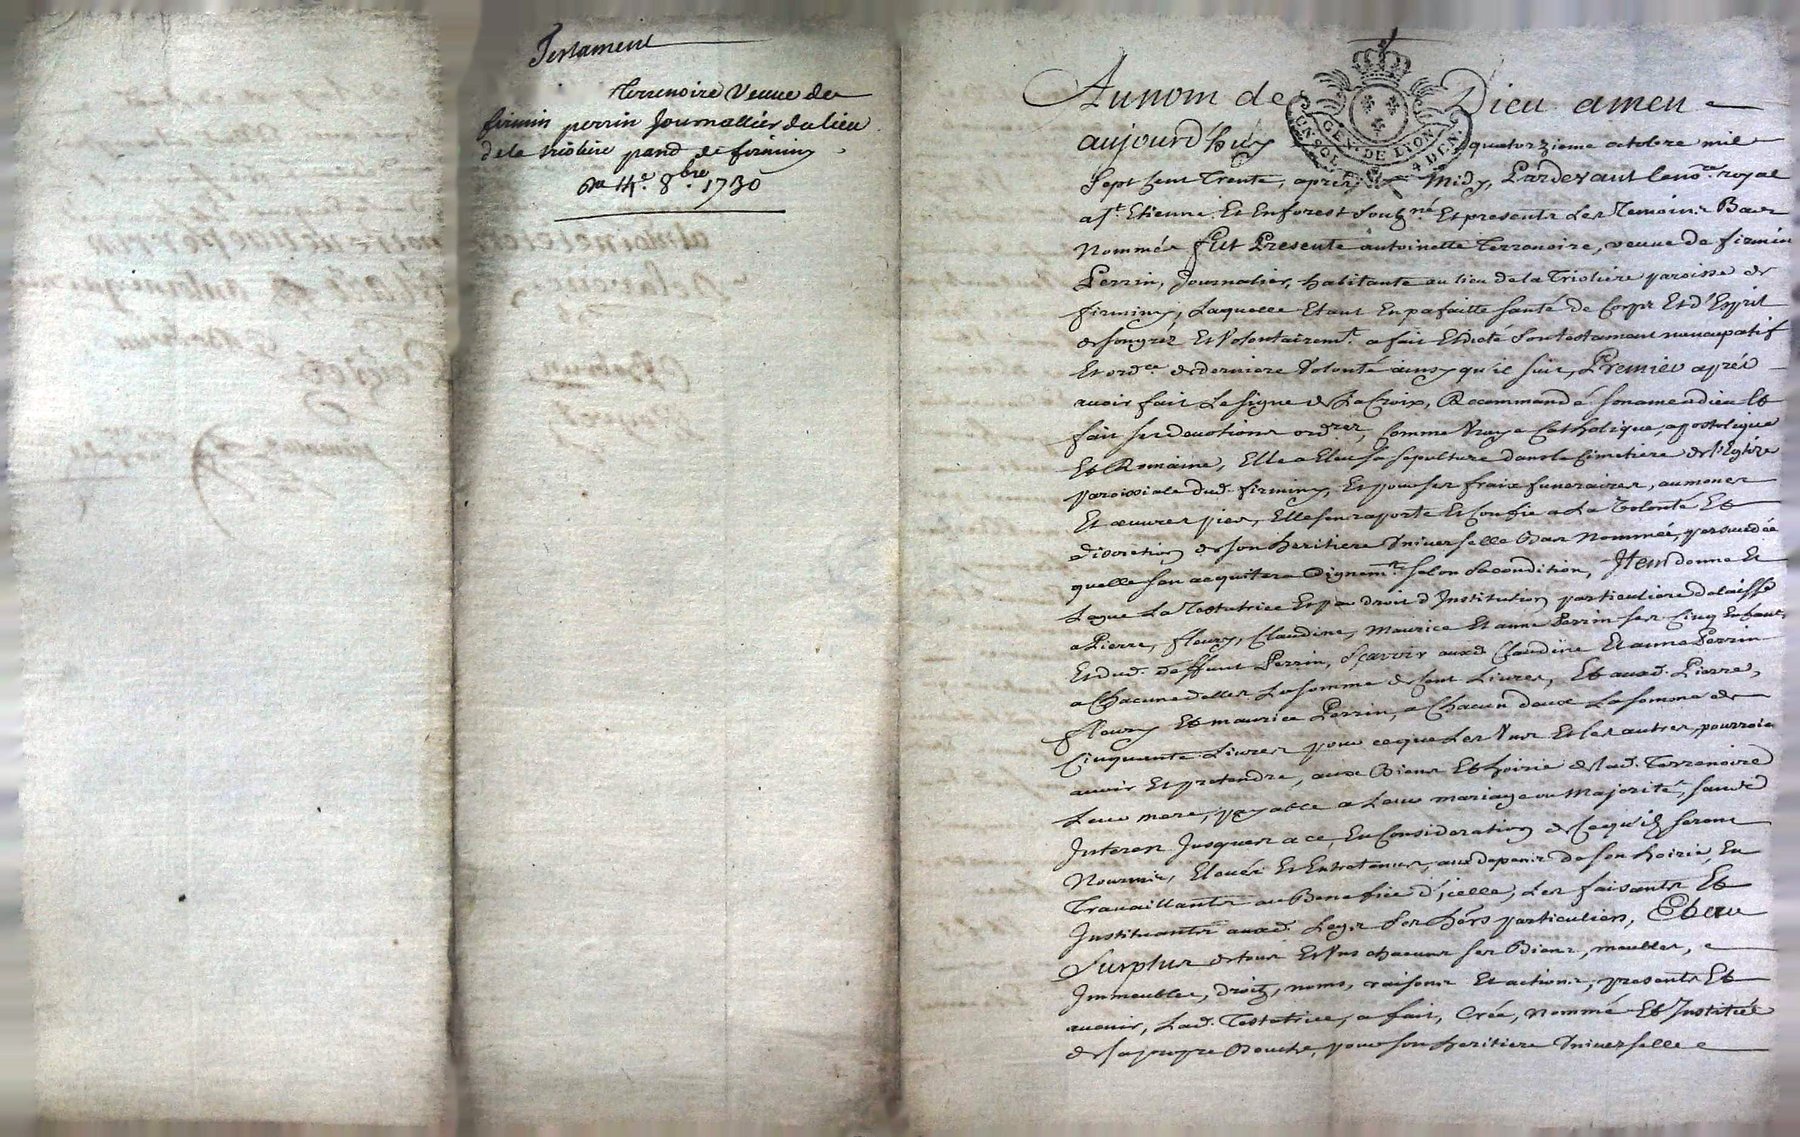 Testament
terrenoire veuve de
firmin perrin Journallier du lieu
de la triolière parois. de firminy
du 14e. 8bre 1730
Au nom de Dieu amen
GEN. DE LYON
4 DEN.
aujourd'huy quatorzieme octobre mil
Sept Cent Trente, apres Midy, Pardevant le no.re royal
a St. Etienne Et Enforest Soubz.né Et presents Les Temoins Bas
Nommés fut Presente antoinette Terrenoire, veuve de firmin
Perrin, Journalier, habitante au lieu de la Triolière paroisse de
firminy, Laquelle Etant En pafaitte Santé de Corps Et d'Esprit
de son grez Et Volontairemt. a fait Et dicté son testamant nuncupatif
Et ord.ce de derniere Volonté ainsy qu'il suit, Premier aprés
avoir fait Le signe de La Croix, Recommandé son ame a dieu Et
fait ses devotions ordres, Comme Vraye Catholique, apostolique
Et Romaine, Elle a Eleu sa sepulture dans le Cimetiere de l'Eglise
paroissiale dud. firminy, Et pour ses fraix funeraires, aumones
Et œuvres pies, Elle s'en raporte Et Confie a La Volonté Et
discretion de son heritiere Universelle Bas Nommée, persuadée
quelle s'en acquitera Dignemt. selon sa condition, Item donne Et
Legue La Testatrice Et par droit d'Institution particuliere delaisse
a Pierre, fleury, Claudine, Maurice Et anne Perrin ses Cinq Enfans,
Et dud. deffunt Perrin, sçavoir auxd. Claudine Et anne Perrin
a Chacune d'elles La somme de Cent Livres, Et auxd. Pierre,
fleury Et maurice Perrin, a Chacun deux La somme de
Cinquante Livres pour ce que Les Uns Et les autres, pourroient
avoir Et pretendre, aux Biens Et hoirie de lad. Terrenoire
Leur mere, payable a Leur mariage ou Majorité, sans
Interest Jusques a ce, En Consideration de ce qu'ilz seront
Nourris, Elevés Et Entretenus, aux depens de son hoirie, En
Travaillants au Benefice d'icelle, Les faisants Et
Instituants auxd. Legs ses hers particuliers, Et au
Surplus de tous Et Uns chacuns ses Biens, meubles,
Immeubles, droitz, noms, raisons Et actions, presents Et
avenir, Lad. Testatrice, a fait, Créé, nommé Et Institué
de sa propre Bouche, pour son heritiere Universelle